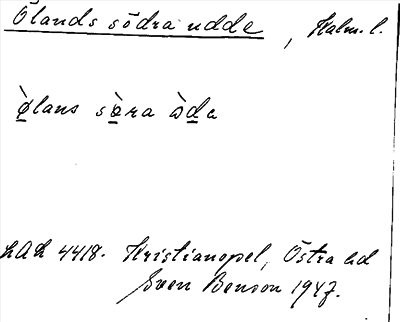 Ölands södra udde, Kalm. l.
ø̀lans sø̀ra ùde
LAL 4418. Kristianopel, Östra hd
Sven Benson 1947.